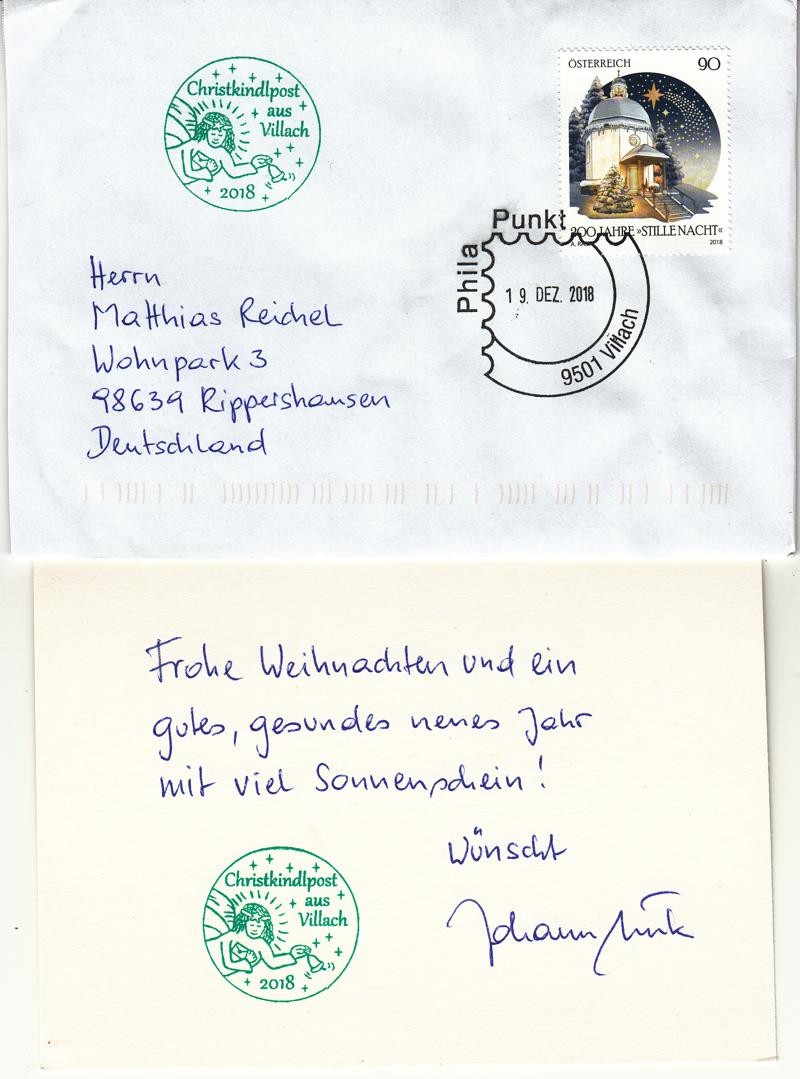 Christkindlpost
aus
Villach
2018
ÖSTERREICH 90
200 JAHRE »STILLE NACHT«
2018
Phila Punkt
19. DEZ. 2018
9501 Villach
Herrn
Matthias Reichel
Wohnpark 3
98639 Rippershausen
Deutschland
Frohe Weihnachten und ein
gutes, gesundes neues Jahr
mit viel Sonnenschein!
Wünscht
Johann
Christkindlpost
aus
Villach
2018